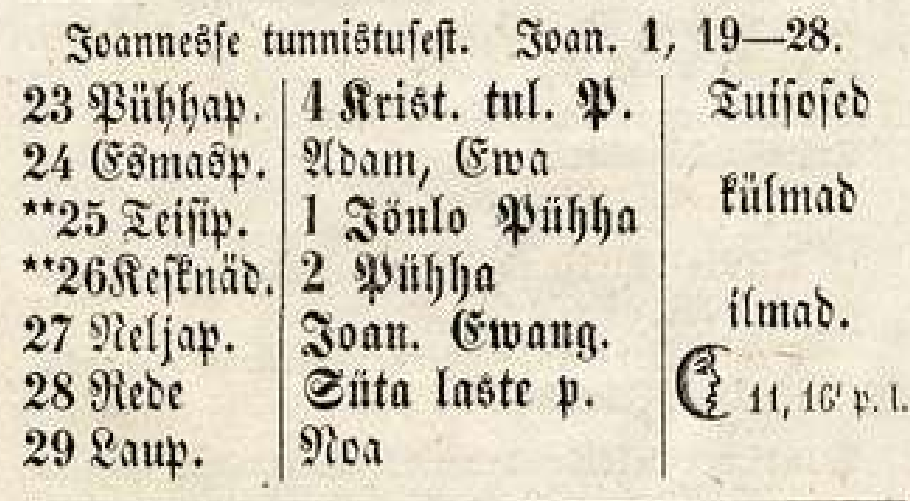 Joannesse tunnistusest. Joan. 1, 19—28.
23 Pühhap. 4 Krist. tul. P. Tuisosed
24 Esmasp. Adam, Ewa
külmad
**25 Teisip. 1 Jöulo Pühha
**26 Kesknäd. 2 Pühha
ilmad.
27 Neljap. Joan. Ewang.
28 Rede Süta laste p. 11, 16' p. l.
29 Laup. Noa